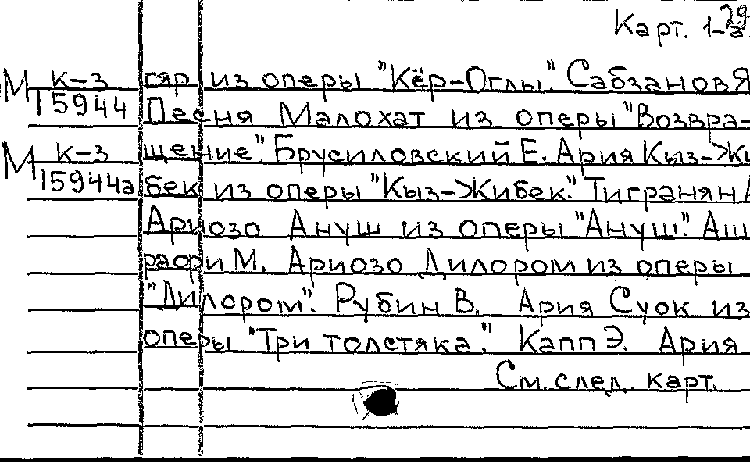 Карт. 1-а 29
М К-3 гяр из оперы "Кёр-Оглы". Сабзанов Я
15944 Песня Малохат из оперы "Возвра-
М К-3 щение". Брусиловский Е. Ария Кыз-Жи
15944а бек из оперы "Кыз-Жибек". Тигранян А
Ариозо Ануш из оперы "Ануш". Аш
рафи М. Ариозо Дилором из оперы
"Дилором". Рубин В. Ария Суок из
оперы "Три толстяка". Капп Э. Ария
См. след. карт.